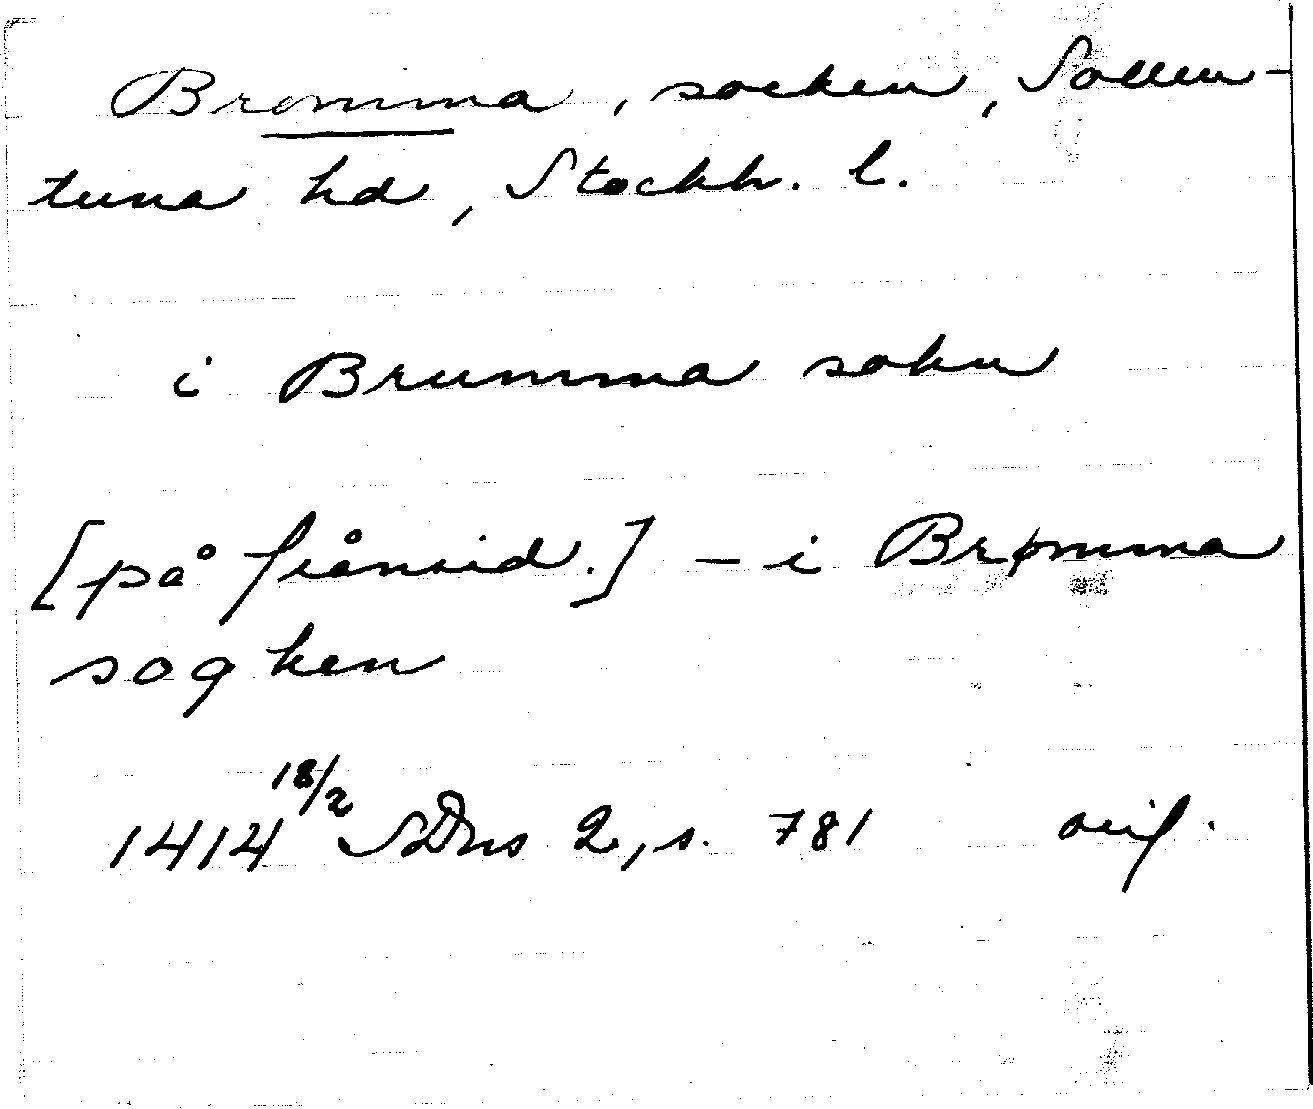 Bromma, socken, Sollen-
tuna hd, Stockh. l.
i Brumma sokn
[på frånsid.] - i Brømma
sogken
1414 18/2 SDns 2, s. 781 orig.